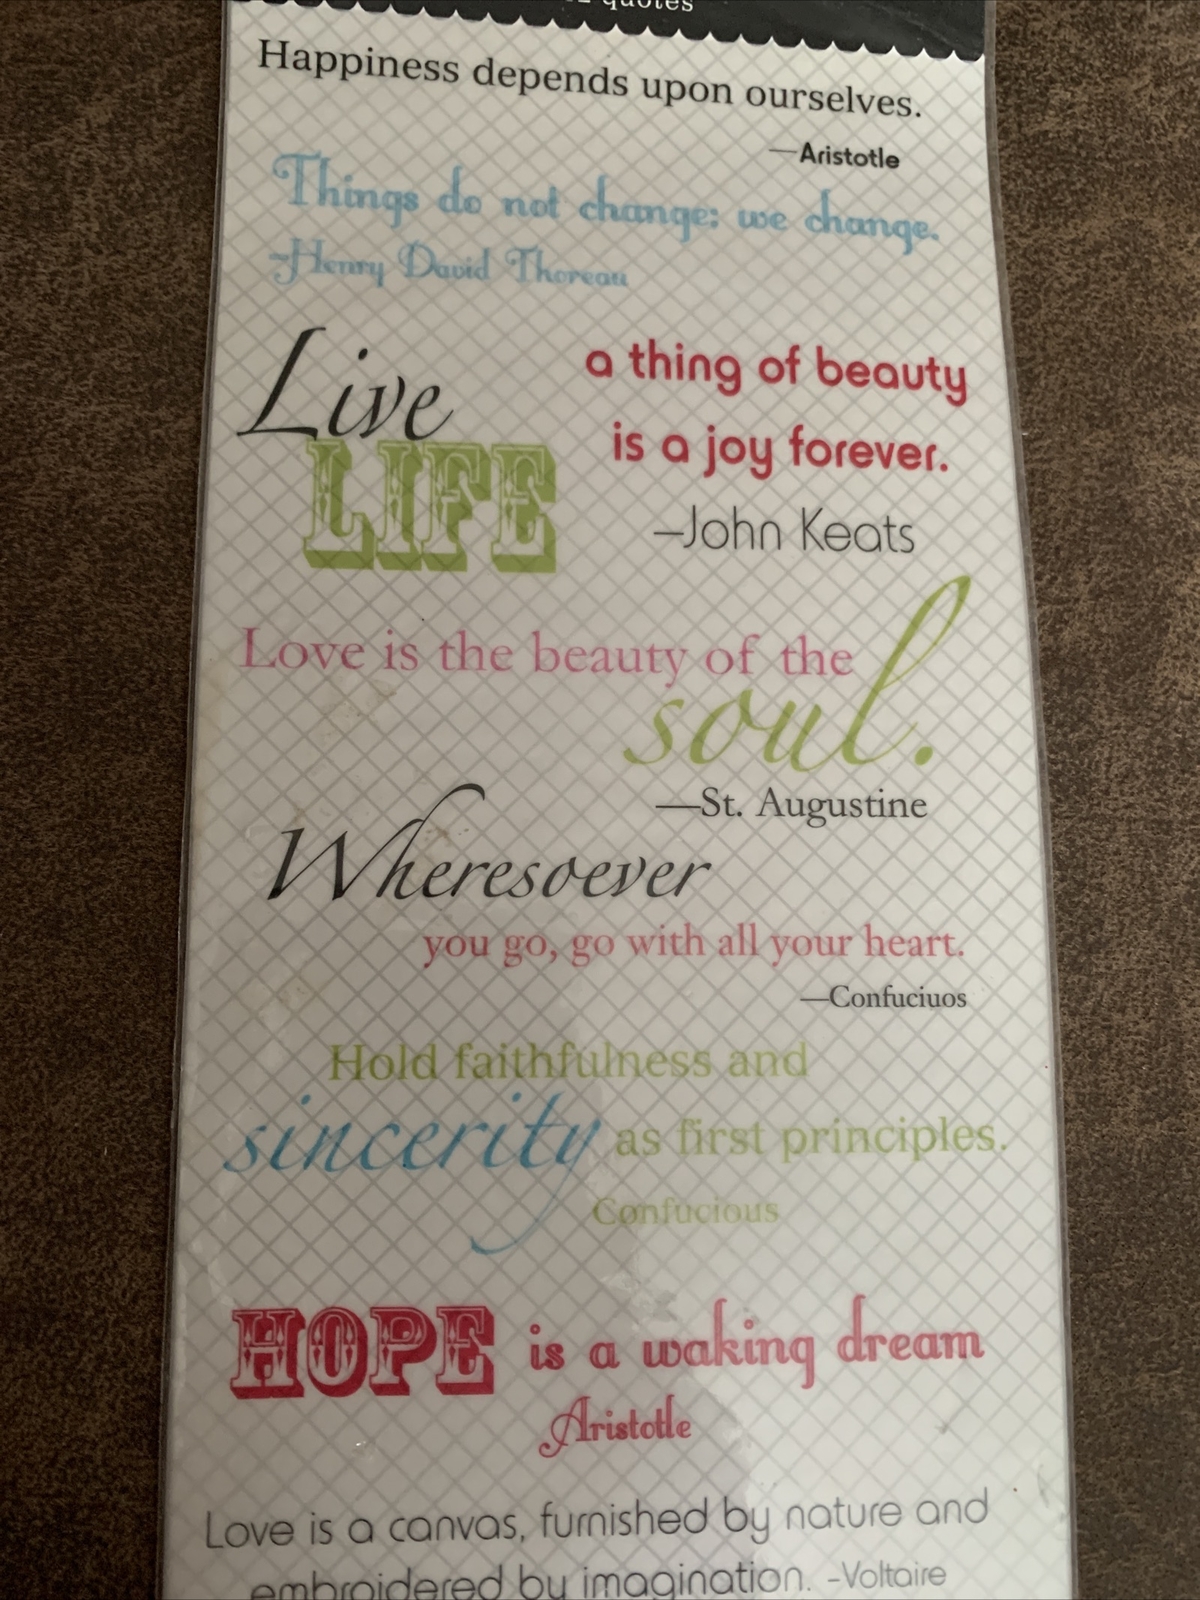 quotes
Happiness depends upon ourselves.
—Aristotle
Things do not change; we change.
-Henry David Thoreau
Live
LIFE
a thing of beauty
is a joy forever.
–John Keats
Love is the beauty of the
soul.
—St. Augustine
Wheresoever
you go, go with all your heart.
—Confuciuos
Hold faithfulness and
sincerity as first principles.
Confucious
HOPE is a waking dream
Aristotle
Love is a canvas, furnished by nature and
embroidered by imagination. -Voltaire